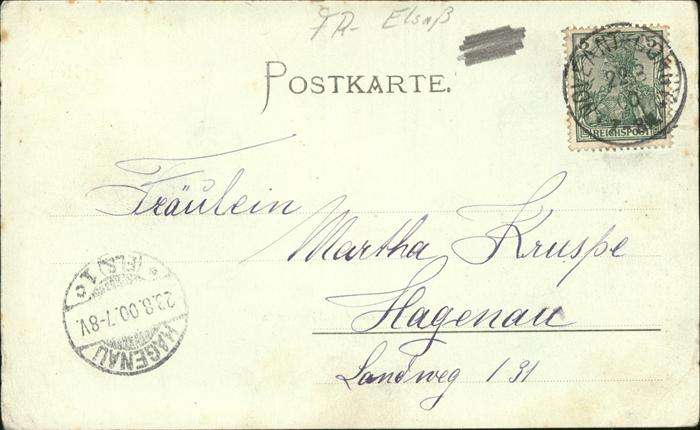 FR- Elsaß
POSTKARTE.
REICHSPOST
Fräulein
Martha Kruspe
Hagenau
Landweg 131
(ELS) 1c
23.8.00.7-8V.
HAGENAU